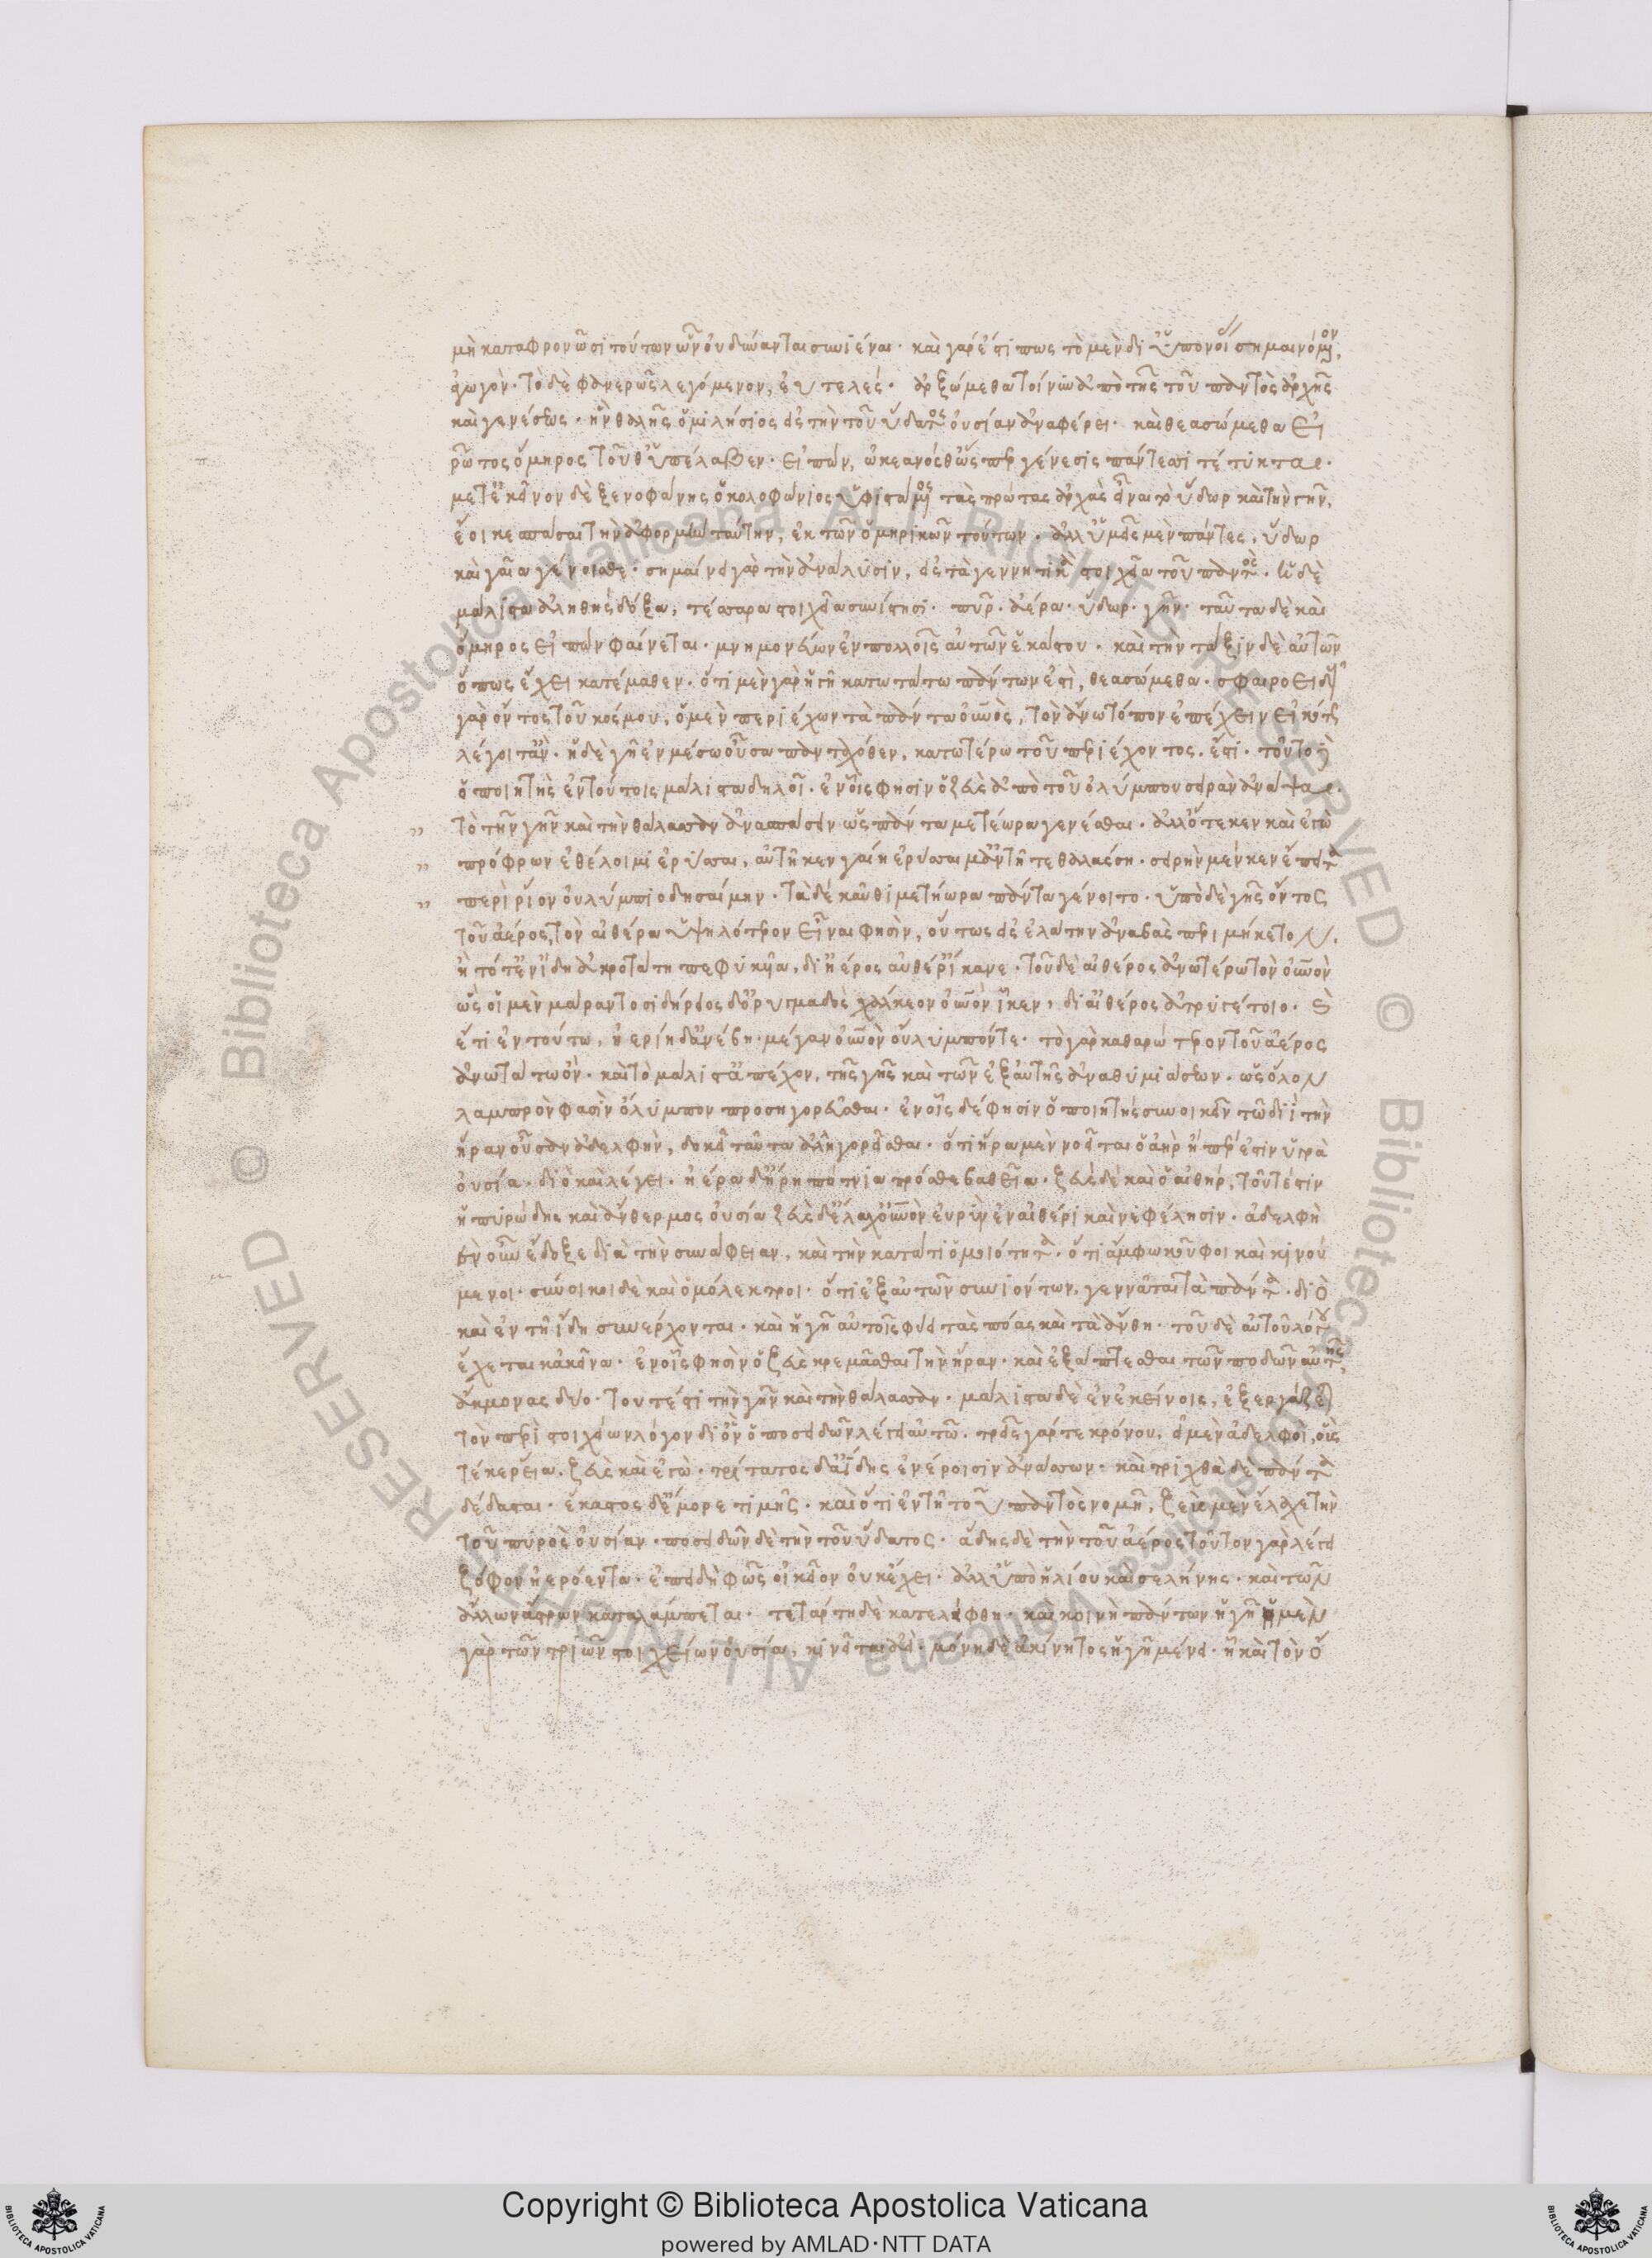 μὴ καταφρονῶσι τούτων ὧν οὐ δύνανται συνιέναι· καὶ γάρ ἐστί πως τὸ μὲν δι ὑπονοίας σημαινόμενον,
ἀγωγὸν· τὸ δὲ φανερῶς λεγόμενον, εὐτελές· ἀρξώμεθα τοίνυν ἀπὸ τῆς τοῦ παντὸς ἀρχῆς
καὶ γενέσεως· ἣν θαλῆς ὁ μιλήσιος εἰς τὴν τοῦ ὕδατος οὐσίαν ἀναφέρει· καὶ θεασώμεθα εἰ
πρῶτος ὅμηρος τοῦθ ὑπέλαβεν· εἰπών, ὠκεανός θ ὥσπερ γένεσις πάντεσι τέτυκται·
μετ ἐκεῖνον δὲ ξενοφάνης ὁ κολοφώνιος ὑφιστάμενος τὰς πρώτας ἀρχὰς εἶναι τὸ ὕδωρ καὶ τὴν γῆν,
ἔοικε σπάσαι τὴν ἀφορμὴν ταύτην, ἐκ τῶν ὁμηρικῶν τούτων· ἀλλ ὑμεῖς μὲν πάντες, ὕδωρ
καὶ γαῖα γένοισθε· σημαίνει γὰρ τὴν ἀνάλυσιν, εἰς τὰ γεννητικὰ στοιχεῖα τοῦ παντός· ἡ δὲ
μάλιστα ἀληθὴς δόξα, τέσσαρα στοιχεῖα συνίστησι· πῦρ· ἀέρα· ὕδωρ· γῆν· ταῦτα δὲ καὶ
ὅμηρος εἰπὼν φαίνεται· μνημονεύων ἐν πολλοῖς αὐτῶν ἑκάστου· καὶ τὴν τάξιν δὲ αὐτῶν
ὅπως ἔχει κατέμαθεν· ὅτι μὲν γὰρ ἡ γῆ κατωτάτω πάντων ἐστὶ, θεασώμεθα· σφαιροειδοῦς
γὰρ ὄντος τοῦ κόσμου, ὁ μὲν περιέχων τὰ πάντα οὐρανὸς, τὸν ἄνω τόπον ἐπέχειν εἰκότως
λέγοιτ ἄν· ἡ δὲ γῆ ἐν μέσω οὖσα πανταχόθεν, κατωτέρω τοῦ περιέχοντος ἐστί· τοῦτο δὲ
ὁ ποιητὴς ἐν τούτοις μάλιστα δηλοῖ· ἐν οἷς φησὶν ὁ ζεὺς ἀπὸ τοῦ ὀλύμπου σειρὰν ἀνάψαι·
τὸ τὴν γῆν καὶ τὴν θάλασσαν ἀνασπάσειν ὡς πάντα μετέωρα γενέσθαι· ἀλλ ὅτε κεν καὶ ἐγὼ
πρόφρων ἐθέλοιμι ἐρύσσαι, αὐτῆ κεν γαίη ἐρύσσαιμ αὐτῆ τε θαλάσση· σειρὴν μέν κεν ἔπειτα
περὶ ῥίον οὐλύμπιο δησαίμην· τὰ δέ κ αὖθι μετήωρα πάντα γένοιτο· ὑπὸ δὲ γῆς ὄντος
τοῦ ἀέρος, τὸν αἰθέρα ὑψηλότερον εἶναι φησὶν, οὕτως εἰς ἐλάτην ἀναβὰς περιμήκετον,
ἣ τότ ἐν ἴδη ἀκροτάτη πεφυκυῖα, δι ἠέρος αἰθέρ ἵκανε· τοῦ δὲ αἰθέρος ἀνωτέρω τὸν οὐρανὸν
ὡς οἱ μὲν μάραντο σιδήρειος δ ὀρυμαγδὸς χάλκεον οὐρανὸν ἷκεν, δι αἰθέρος ἀτρυγέτοιο· καὶ
ἔτι ἐν τούτω, ἠερίη δ ἀνέβη· μέγαν οὐρανὸν οὔλυμπόν τε· τὸ γὰρ καθαρώτερον τοῦ ἀέρος
ἀνωτάτω ὄν· καὶ τὸ μάλιστα ἀπέχον, τῆς γῆς καὶ τῶν ἐξ αὐτῆς ἀναθυμιάσεων· ὡς ὅλον
λαμπρὸν φασὶν ὄλυμπον προσηγορεῦσθαι· ἐν οἷς δέ φησιν ὁ ποιητὴς συνοικεῖν τῶ διὶ τὴν
ἥραν οὖσαν ἀδελφὴν, δοκεῖ ταῦτα ἀλληγορεῖσθαι· ὅτι ἥρα μὲν νοεῖται ὁ ἀὴρ ἥπερ ἐστὶν ὑγρὰ
οὐσία· διὸ καὶ λέγει· ἠέρα δ ἥρη πότνια πρόσθε βαθεῖα· ζεὺς δὲ καὶ ὁ αἰθὴρ, τοῦτέστιν
ἡ πυρώδης καὶ ἔνθερμος οὐσία ζεὺς δ ἔλαχ οὐρανὸν εὐρὺν ἐν αἰθέρι καὶ νεφέλησιν· ἀδελφὴ
σὺν οὖν ἔδοξε διὰ τὴν συνάφειαν, καὶ τὴν κατά τι ὁμοιότητα· ὅτι ἄμφω κοῦφοι καὶ κινού
μενοι· σύνοικοι δὲ καὶ ὁμόλεκτροι· ὅτι ἐξ αὐτῶν συνιόντων, γεννᾶται τὰ πάντα· διὸ
καὶ ἐν τῆ ἴδη συνέρχονται· καὶ ἡ γῆ αὐτοῖς φύει τὰς πόας καὶ τὰ ἄνθη· τοῦ δὲ αὐτοῦ λόγου
ἔχεται κἀκεῖνα· ἐν οἷς φησὶν ὁ ζεὺς κρεμᾶσθαι τὴν ἥραν· καὶ ἐξάπτεσθαι τῶν ποδῶν αὐτῆς,
ἄκμονας δύο· τουτέστι τὴν γῆν καὶ τὴν θάλασσαν· μάλιστα δὲ ἐν ἐκείνοις, ἐξεργάζεται
τὸν περὶ στοιχείων λόγον δι ὃν ὁ ποσειδῶν λέγει αὐτῶ· τρεῖς γάρ τ ἐκ κρόνου, εἰμὲν ἀδελφοὶ, οὓς
τέκε ῥεῖα· ζεὺς καὶ ἐγὼ· τρίτατος δ ἀΐδης ἐνέροισιν ἀνάσσων· καὶ τριχθὰ δὲ πάντα
δέδασται· ἕκαστος δ ἔμμορε τιμῆς· καὶ ὅτι ἐν τῆ τοῦ παντὸς νομῆ, ζεὺς μὲν ἔλαχε τὴν
τοῦ πυρὸς οὐσίαν· ποσειδῶν δὲ τὴν τοῦ ὕδατος· ἅδης δὲ τὴν τοῦ ἀέρος τοῦτον γὰρ λέγει
ζόφον ἠερόεντα· ἐπειδὴ φῶς οἰκεῖον οὐκ ἔχει· ἀλλ ὑπὸ ἡλίου καὶ σελήνης· καὶ τῶν
ἄλλων ἄστρων καταλάμπεται· τετάρτη δὲ κατελείφθη· καὶ κοινὴ πάντων ἡ γῆ ἡ μὲν
γὰρ τῶν τριῶν στοιχείων οὐσία, κινεῖται ἀεί· μόνη δὲ ἀκίνητος ἡ γῆ μένει· ἧ καὶ τὸν ὄ
Copyright © Biblioteca Apostolica Vaticana
powered by AMLAD·NTT DATA